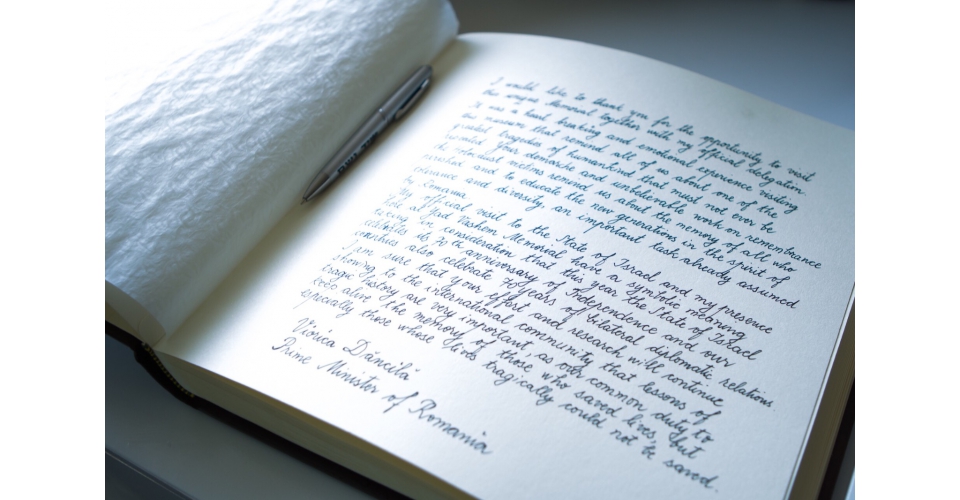 I would like to thank you for the opportunity to visit
the unique Memorial together with my official delegation
It was a heart breaking and emotional experience visiting
the museum that remind all of us about one of the
greatest tragedies of humankind that must not ever be
repeated. Your demarche and unbelievable work on remembrance
the Holocaust victims remind us about the memory of all who
perished and to educate the new generations in the spirit of
tolerance and diversity, an important task already assumed
by Romania.
My official visit to the State of Israel and my presence
here at Yad Vashem Memorial have a symbolic meaning
taking in consideration that this year the State of Israel
celebrates its 70th anniversary of Independence and our
countries also celebrate 70 years of bilateral diplomatic relations.
I am sure that your effort and research will continue
showing to the international community that lessons of
tragic history are very important, as our common duty to
keep alive the memory of those who saved lives, but
especially those whose lives tragically could not be saved.
Viorica Dăncilă
Prime Minister of Romania